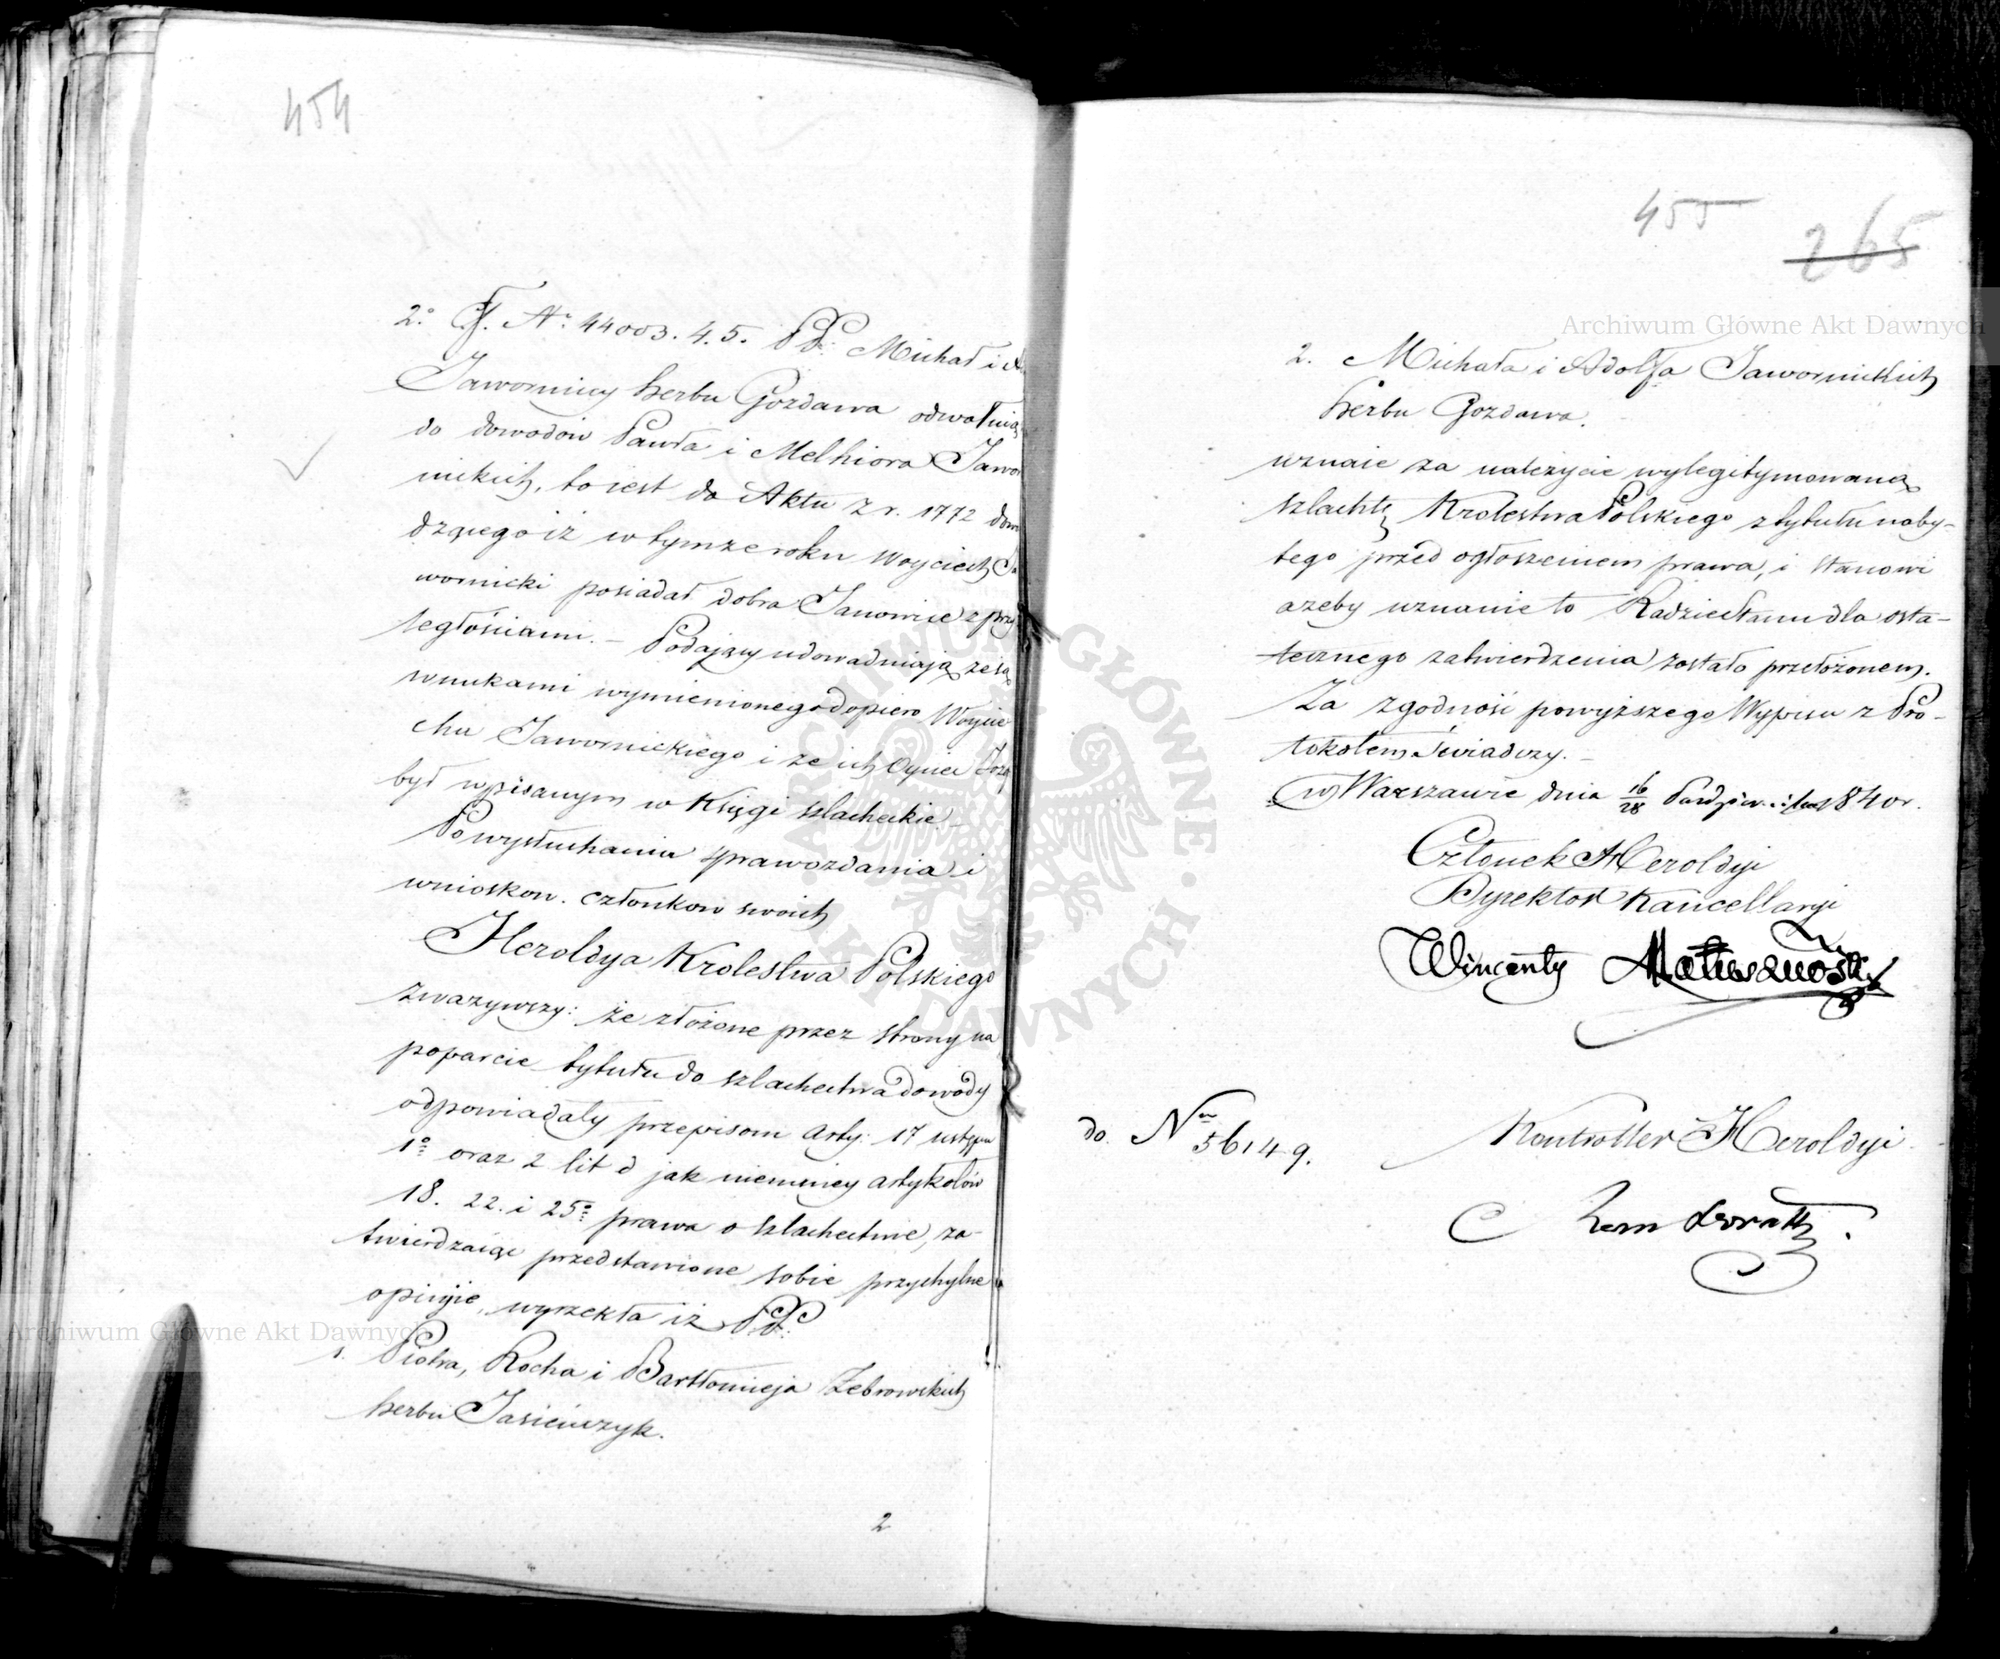 454
2.° N° 44003.4.5. PP. Michał i
Jawornicy herbu Gozdawa odwołują
do dowodów Pawła i Melhiora Jawor
nickich, to iest do Aktu z r. 1772 dowo
dzącego iż w tymże roku Woyciech Ja
wornicki posiadał dobra Janowice z przy
ległościami. – Podający udowadniają że są
wnukami wymienionego dopiero Woycie
cha Jawornickiego i że ich Oyciec Józef
był wpisanym w Księgi szlacheckie. –
Po wysłuchaniu sprawozdania i
wnioskow. członkow swoich
Heroldya Krolestwa Polskiego
zważywszy: że złożone przez strony na
poparcie tytułu do szlachectwa dowody
odpowiadały przepisom arty: 17 ustępu
1° oraz 2 lit d jak niemniey artykułów
18. 22. i 25° prawa o szlachectwie, za-
twierdzaiąc przedstawione sobie przychylne
opinije, wyrzekła iż PP.
1. Piotra, Rocha i Bartłomieja Żebrowskich
herbu Jasieńczyk.
2
455
265
2. Michała i Adolfa Jawornickich
herbu Gozdawa.
uznaie za należycie wylegitymowaną
szlachtę Krolestwa Polskiego z tytułu naby-
tego przed ogłoszeniem prawa, i stanowi
ażeby uznanie to Radzie Stanu dla osta-
tecznego zatwierdzenia zostało przełożonem.
Za zgodność powyższego Wypisu z Pro-
tokołem świadczy. –
w Warszawie dnia 16/28 Paździer: 1840 r.
Członek Heroldyi
Dyrektor Kancellaryi
Wincenty Matuszewski
do. Nru 56149.
Kontroller Heroldyi
Archiwum Główne Akt Dawnych
Archiwum Główne Akt Dawnych
ARCHIWUM GŁÓWNE AKT DAWNYCH